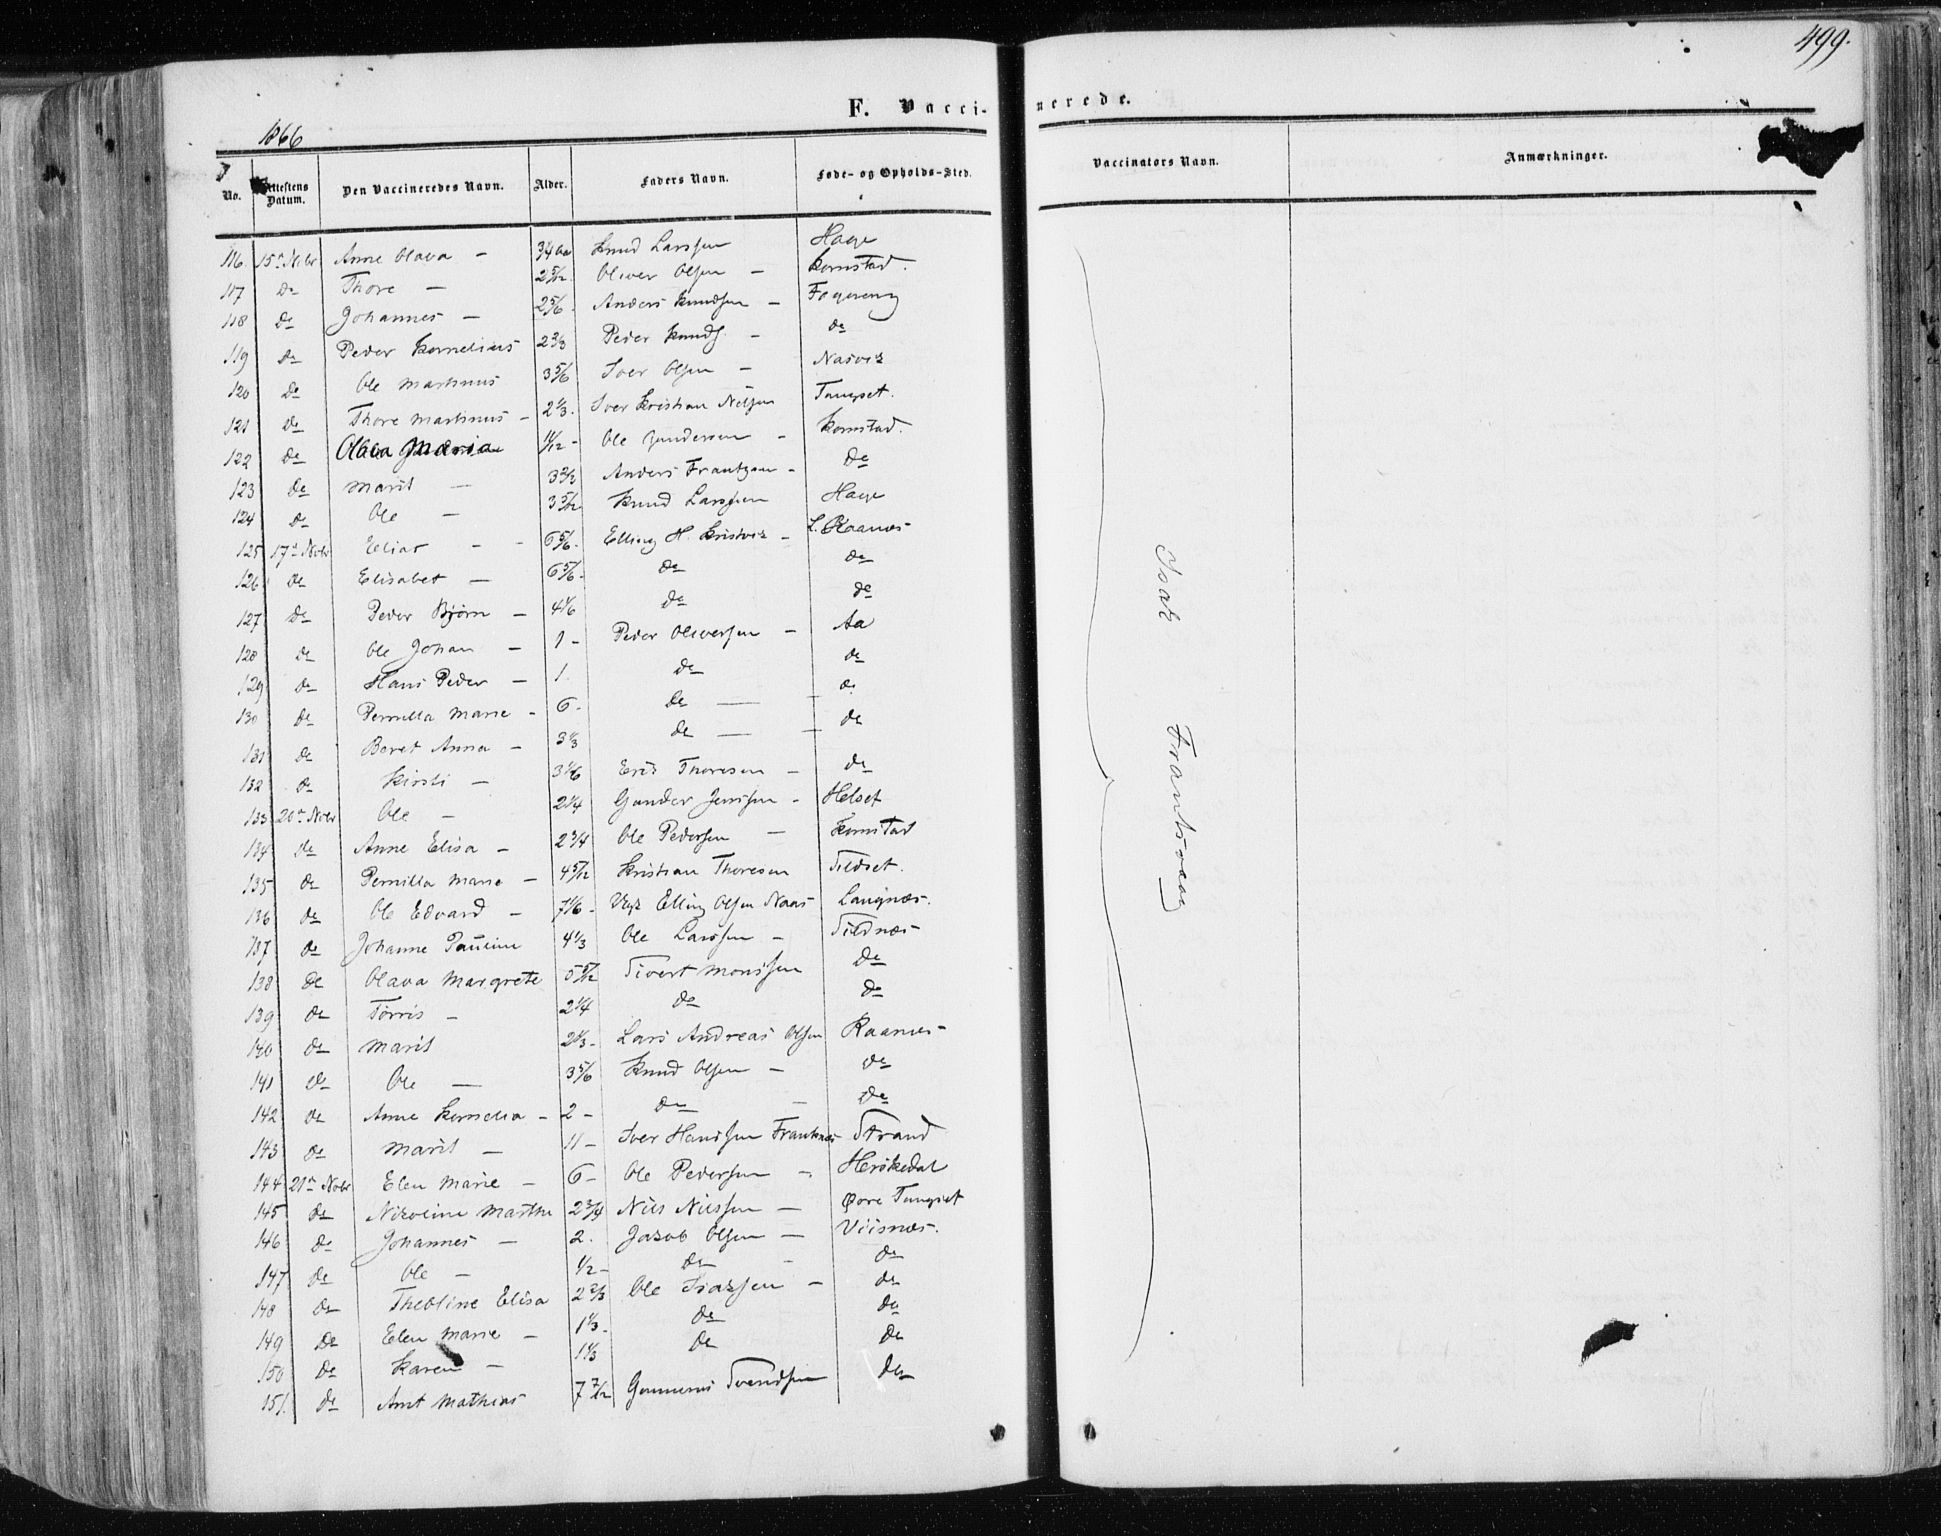 499.
F. Vacci-
nerede.
1866
No.
Attestens Datum.
Den Vaccineredes Navn.
Alder.
Faders Navn.
Føde- og Opholds-Sted.
Vaccinators Navn.
Anmærkninger.
116. 15de Novbr Anne Olava - Knud Larssen Hage
117 do Thore - 2 5/12. Oliver Olsen - Kornstad.
118 do Johannes - 2 5/6. Anders Knudsen - Fagereng
119 do Peder Kornelius 2 2/3 Peder Knuds. - do
120 do Ole Martinus 3 5/6 Iver Olsen - Nasvik
121 do Thore Martinus - 2 1/3. Iver Kristian Nilsen Tangset.
122 do Olava Maria 11/12 - Ole Gundersen - Kornstad.
123 do Marit - 3 2/3 Anders Frantzen - do
124 do Ole - 3 5/12 Knud Larssen Hage
125 17de Novbr Elias - - 6 5/6. Elling H. Kristvik - L. Raanes-
126 do Elisabet - 6 5/6. do do
127 do Peder Bjørn - 4 1/6 do do
128 do Ole Johan - 1 - Peder Oliversen - Aa
129 do Hans Peder - 1. do do
130 do Pernilla Marie - 6 - do - do
131 do Beret Anna - 3 1/3 do - do
132 do Kirsti - 3 1/6 Erik Thoresen - do
133 20de Novbr Ole - 2 1/4 Gunder Jenssen - Helset
134 do Anne Elisa - 2 3/4 Ole Pedersen - Kornstad
135 do Pernilla Marie - 4 5/12 Kristian Thoresen Sildset.
136 do Ole Edvard - 7 1/6 - Elling Olsen Naas Langnæs.
137 do Johanne Pauline 4 1/3 Ole Larssen - Sildnæs-
138 do Olava Margrete 5 5/12 Sivert Monssen do
139 do Tørris - 2 1/4 do do
140 do Marit 2 1/3 - Lars Andreas Olsen Raanes-
141 do Ole - 3 5/6 Knud Olsen - do
142 do Anne Kornelia - 2 - do - do
143 do Marit - 11 - Iver Hanssen Strand
144 21de Novbr Elen Marie - 6 - Ole Pedersen - Herskedal
145 do Nikoline Marthe 2 3/4 Nils Nilssen - Øvre Tangset
146 do Johannes - 2. Jakob Olsen - Viisnæs.
147 do Ole - 1/2 - do - do
148 do Theoline Elisa 2 2/3 Ole Isaksen - do
149 do Elen Marie - 1 1/3. do do
150 do Karen - 1 1/3 do do
151. do Arnt Mathias 7 7/12 Gunnerus Svendsen do
Isak Frantsvaag